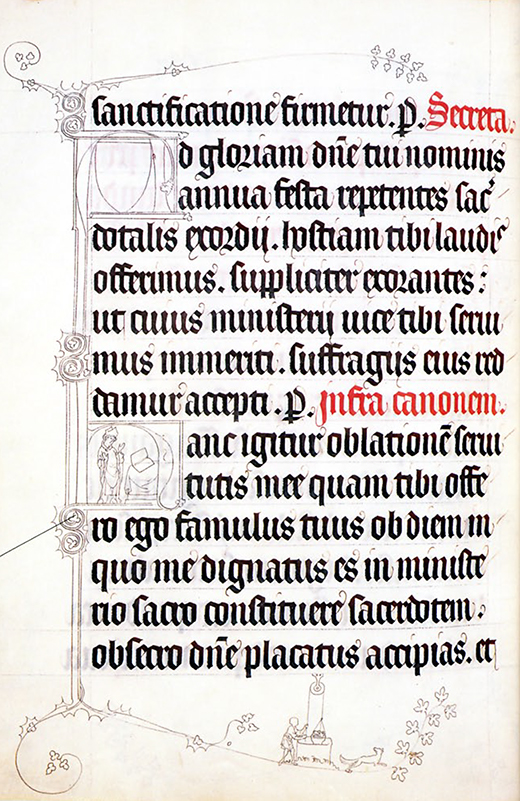 sanctificatione firmetur. p. Secreta.
d gloriam dñe tui nominis
annua festa repetentes sac̉
dotalis exordij. hostiam tibi laudis
offerimus. suppliciter exorantes:
ut cuius ministerij uice tibi serui
mus immeriti. suffragijs eius red
damur accepti. p. Infra canonem.
anc igitur oblationē serui
tutis mee quam tibi offe
ro ego famulus tuus ob diem in
quo me dignatus es in ministe
rio sacro constituere sacerdotem.
obsecro dñe placatus accipias. et